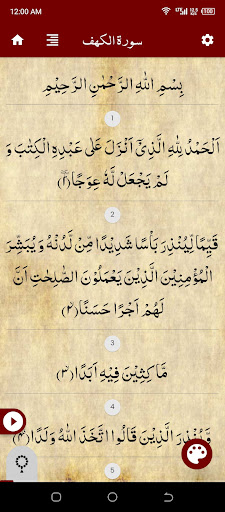 12:00 AM
سورة الكهف
بِسْمِ اللهِ الرَّحْمٰنِ الرَّحِيْمِ
1
اَلْحَمْدُ لِلّٰهِ الَّذِيْٓ اَنْزَلَ عَلٰى عَبْدِهِ الْكِتٰبَ وَ
لَمْ يَجْعَلْ لَّهٗ عِوَجًا(۱)
2
قَيِّمًا لِّيُنْذِرَ بَاْسًا شَدِيْدًا مِّنْ لَّدُنْهُ وَ يُبَشِّرَ
الْمُؤْمِنِيْنَ الَّذِيْنَ يَعْمَلُوْنَ الصّٰلِحٰتِ اَنَّ
لَهُمْ اَجْرًا حَسَنًا(۲)
3
مَّاكِثِيْنَ فِيْهِ اَبَدًا(۳)
4
وَّ يُنْذِرَ الَّذِيْنَ قَالُوا اتَّخَذَ اللّٰهُ وَلَدًا(۴)
5